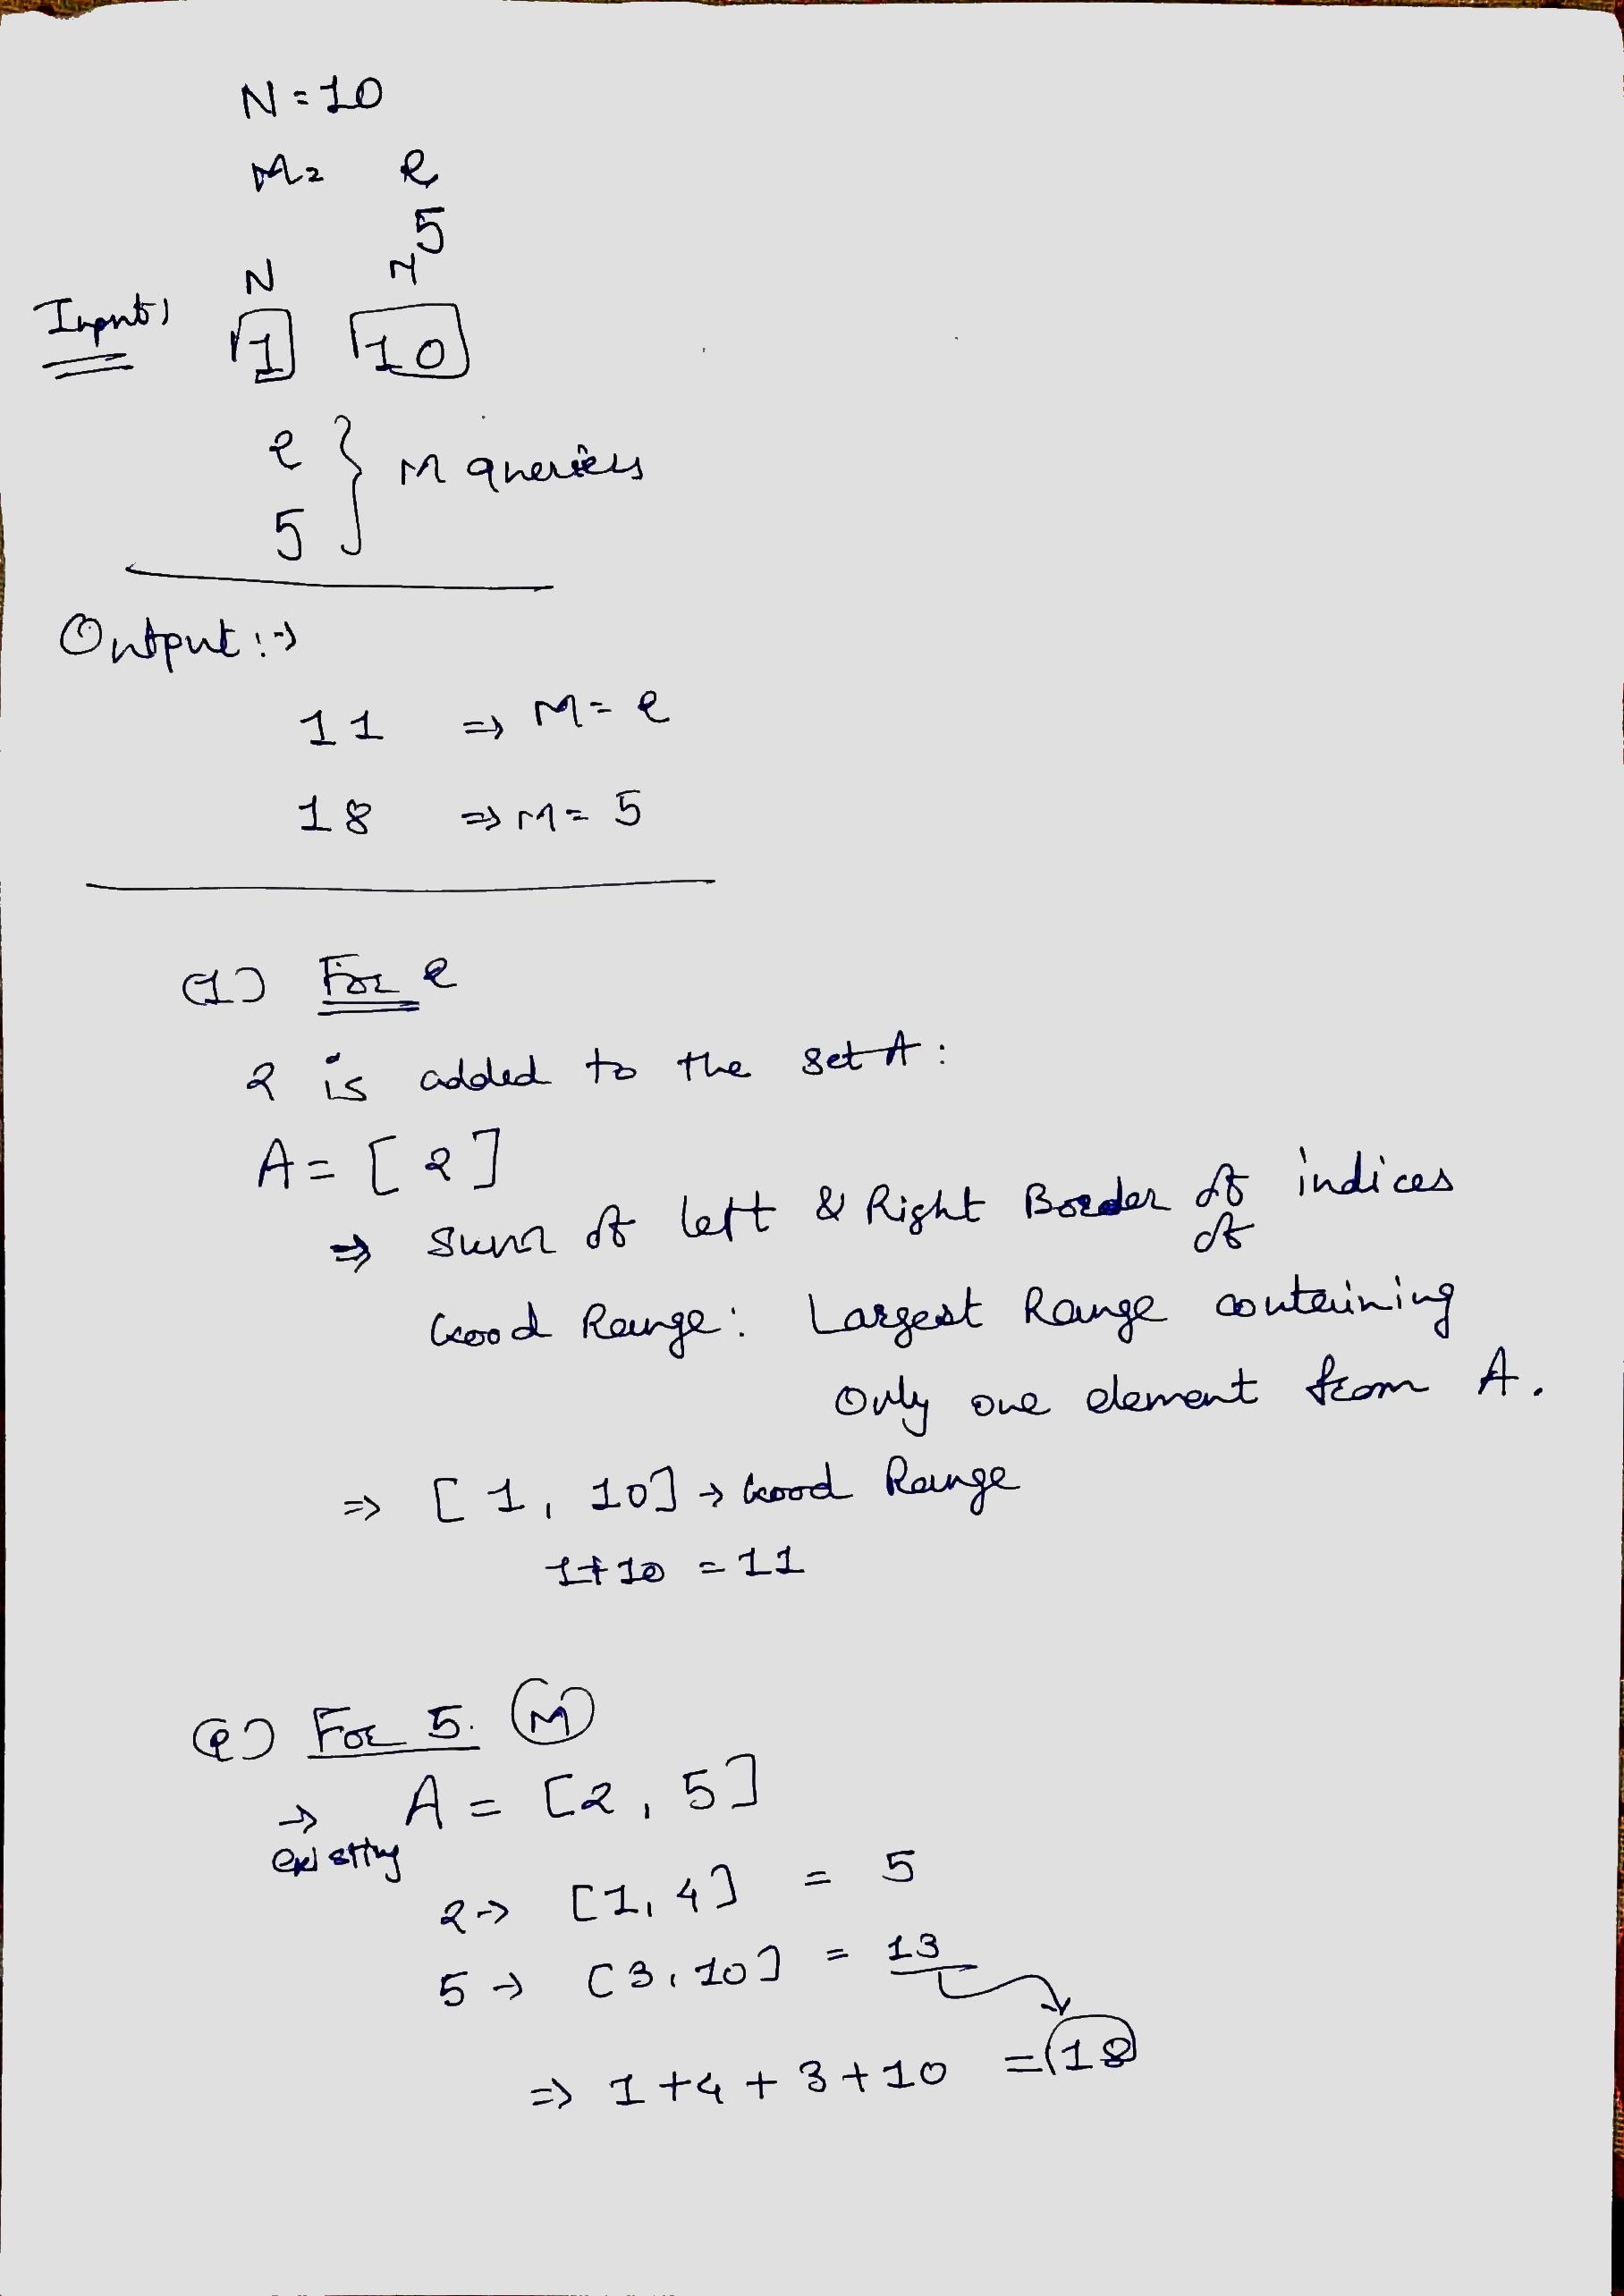 N = 10
M = 2
5
N M
Input:
1 10
2
5 } M queries
Output :→
11 ⇒ M = 2
18 ⇒ M = 5
(1) For 2
2 is added to the set A :
A = [ 2 ]
⇒ Sum of left & Right Border of indices
of
Good Range : Largest Range containing
Only one element from A.
⇒ [ 1, 10] → Good Range
1+10 = 11
(2) For 5. (M)
→ A = [2, 5]
existing
2 → [1, 4] = 5
5 → [3, 10] = 13
⇒ 1 + 4 + 3 + 10 = 18